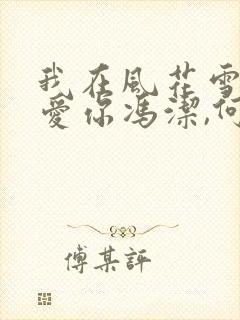 我在風花雪
愛你馮潔,何
傅某評